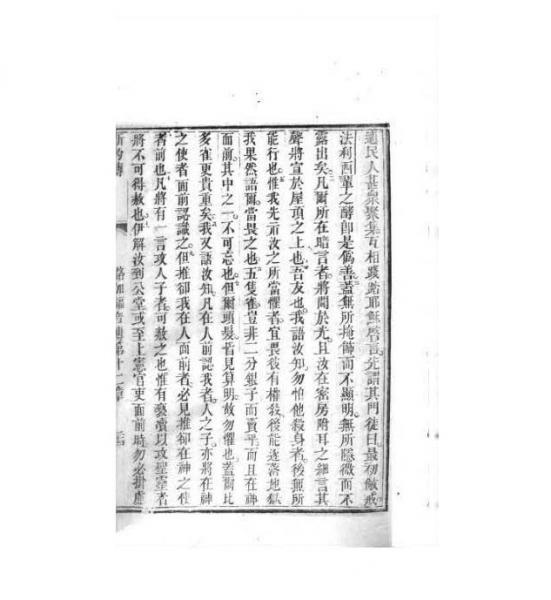 適民人甚衆聚集互相踐踏耶穌啓言先謂其門徒曰最初儆戒
法利西輩之酵卽是僞善蓋無所掩飾而不顯明無所隱微而不
露出矣凡爾所在暗言者將聞於光且汝在密房附耳之細言其
聲將宣於屋頂之上也吾友也我語汝知勿怕他殺身者後無所
能行也惟我先示汝之所當懼者宜畏彼有權殺後能逐落地獄
我果然語爾當畏之也五隻雀豈非二分銀子而賣乎而且在神
面前其中之一不可忘也但爾頭髮皆見算明故勿懼也蓋爾比
多雀更貴重矣我又語汝知凡在人前認我者人之子亦將在神
之使者面前認識之但推卻我在人面前者必見推卻在神之使
者前也凡將有一言攻人子者可赦之也惟有褻瀆以攻聖靈者
將不可得赦也伊解汝到公堂或至上憲官吏面前時勿必掛慮
路加福音傳第十二章